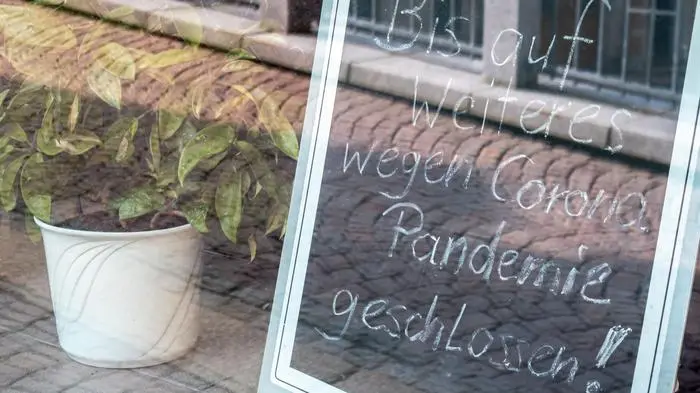 Bis auf
Weiteres
wegen Corona
Pandemie
geschlossen!